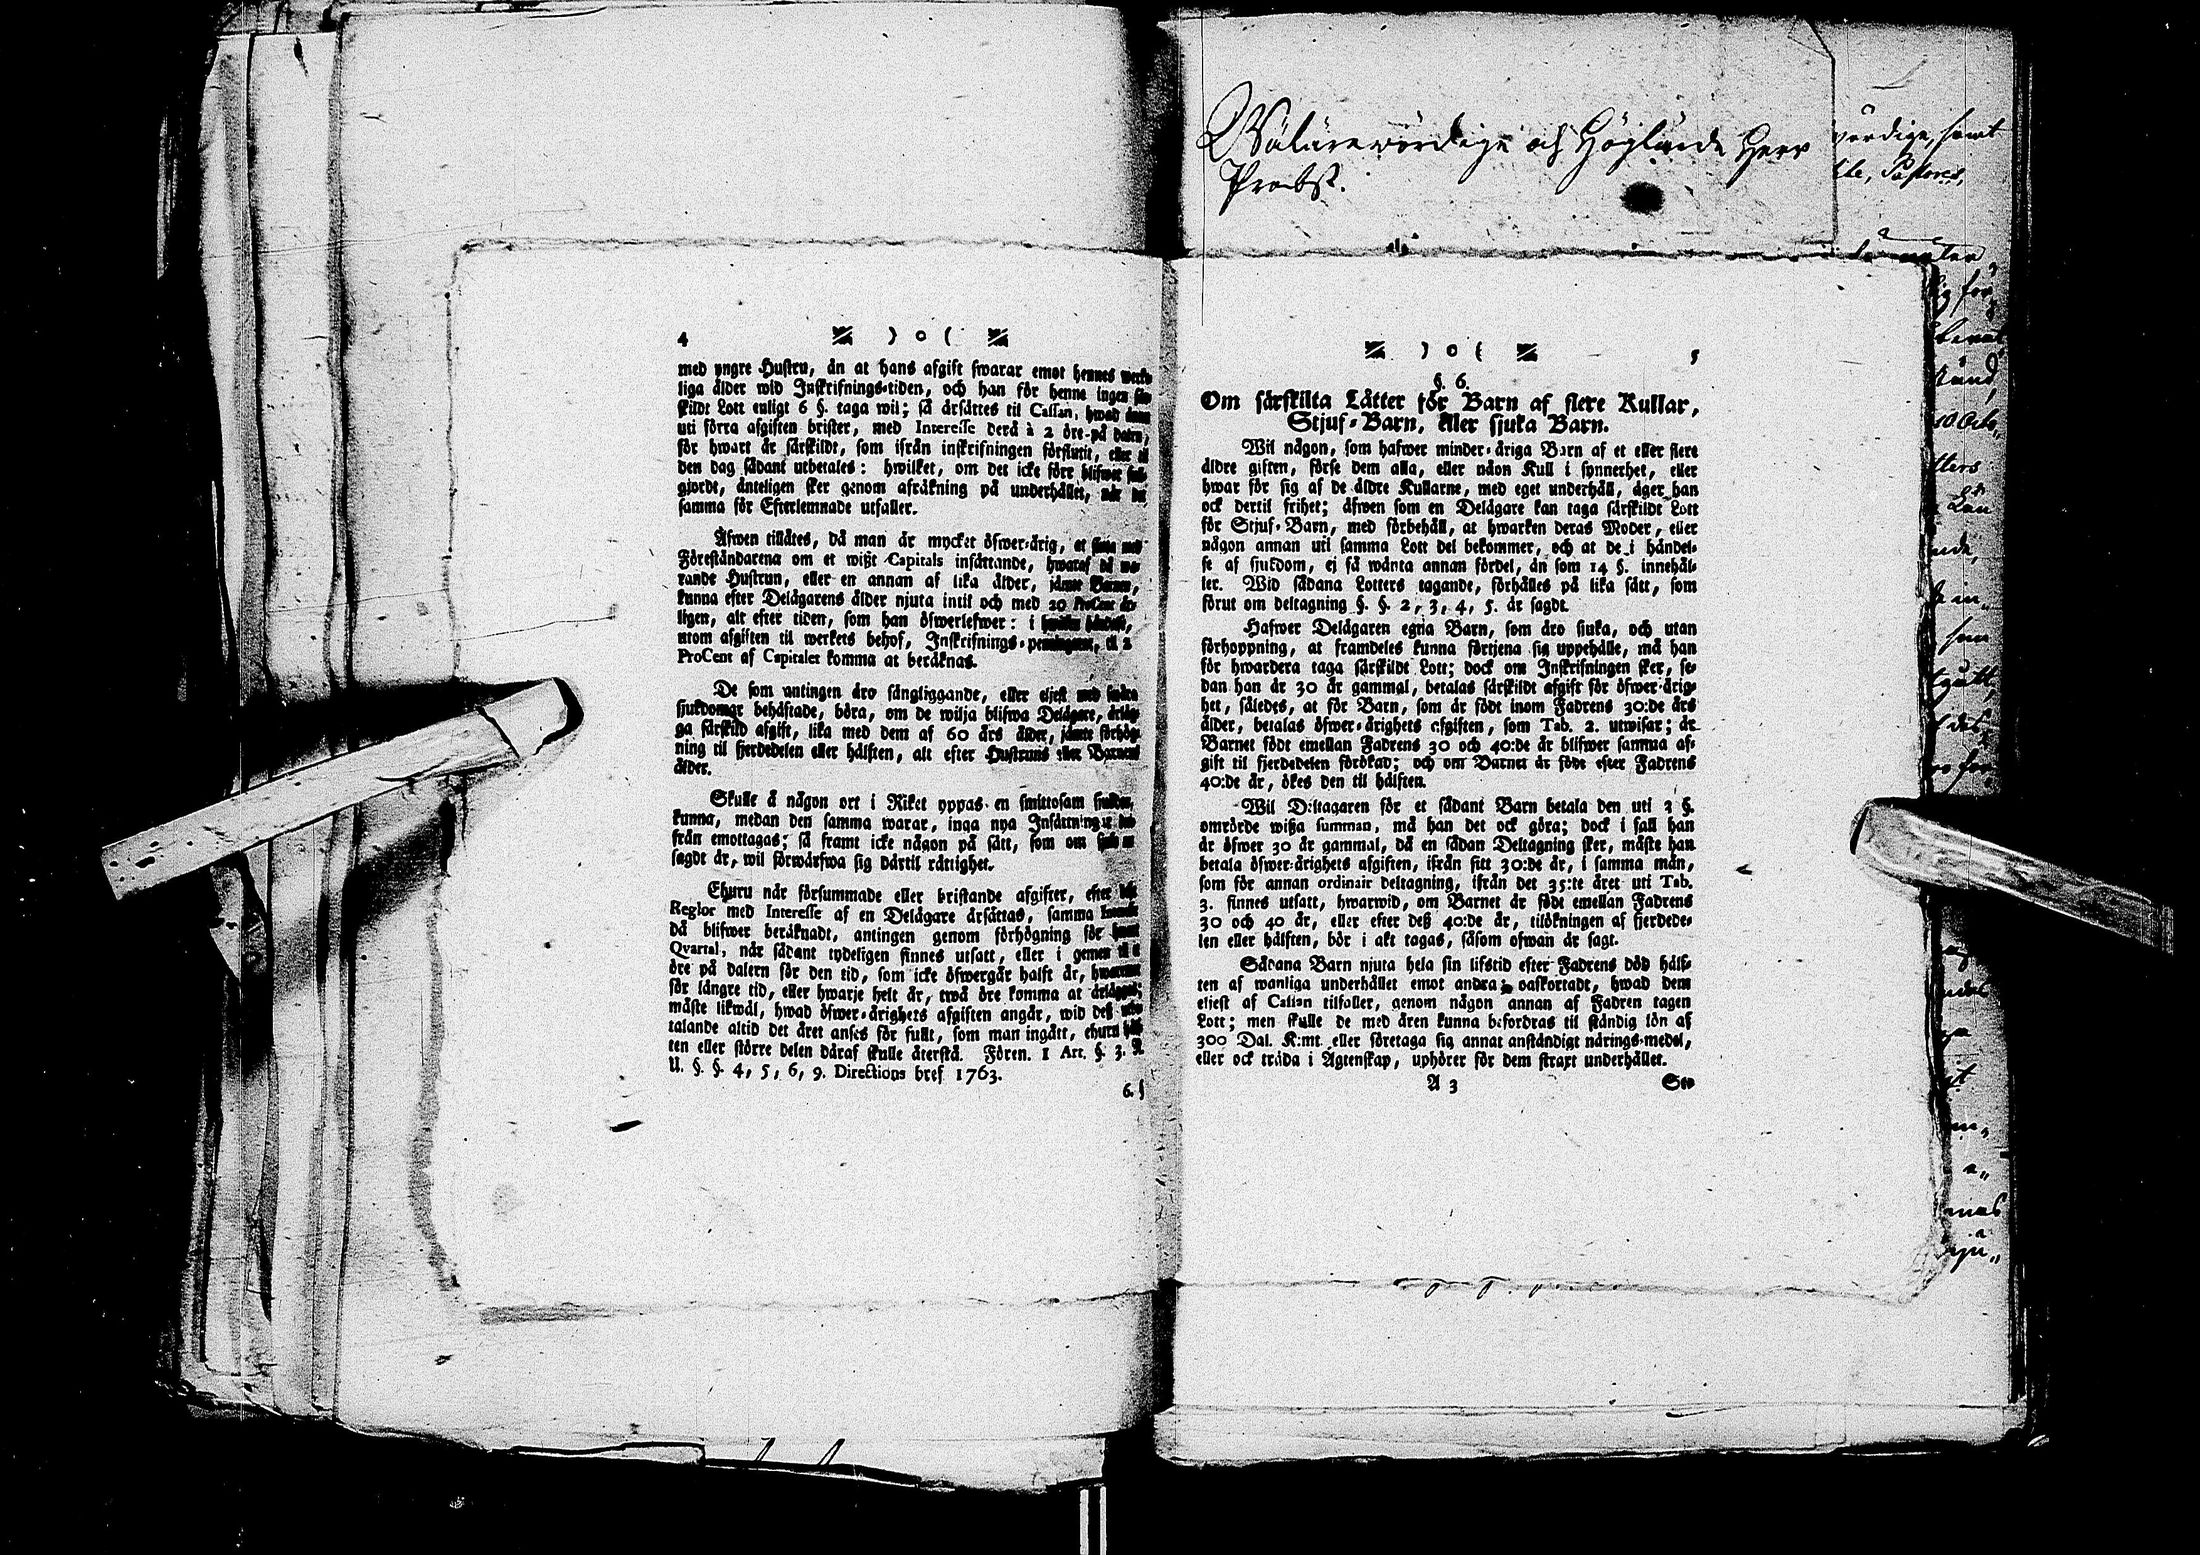 4 ) o (
med yngre Hustru, än at hans afgift swarar emot hennes
liga ålder wid Inskrifnings-tiden, och han för henne ingen
skildt Lott enligt 6 §. taga wil; så ärsättes til Cassan, hwad
uti förra afgiften brister, med Interesse derå à 2 öre på dalern,
för hwart år särskildt, som ifrån inskrifningen förflutit, eller til
den dag sådant utbetales: hwilket, om det icke förr blifwer
giordt, änteligen sker genom afräkning på underhållet, när det
samma för Efterlemnade utfaller.
Äfwen tillåtes, då man är mycket öfwer-årig, at
Föreståndarena om et wißt Capitals insättande, hwaraf då wa-
rande Hustrun, eller en annan af lika ålder, jämte Barnen,
kunna efter Delägarens ålder njuta intil och med 20 ProCent år-
ligen, alt efter tiden, som han öfwerlefwer: i
utom afgiften til werkets behof, Inskrifnings-penningarne, til 2
ProCent af Capitalet komma at beräknas.
De som antingen äro sängliggande, eller eljest med swåra
sjukdomar behäftade, böra, om de wilja blifwa Delägare, ärläg-
ga särskild afgift, lika med dem af 60 års ålder, jämte förhög-
ning til fjerdedelen eller hälften, alt efter Hustruns eller Barnens
ålder.
Skulle å någon ort i Riket yppas en smittosam
kunna, medan den samma warar, inga nya Insättningar
från emottagas; så framt icke någon på sätt, som om
sagdt är, wil förwärfwa sig därtil rättighet.
Ehuru när försummade eller bristande afgifter, efter
Reglor med Interesse af en Delägare ärsättas, samma
då blifwer beräknadt, antingen genom förhögning för hwart
Qvartal, när sådant tydeligen finnes utsatt, eller i gemen til 1
öre på dalern för den tid, som icke öfwergår halft år,
för längre tid, eller hwarje helt år, twå öre komma at ärläggas;
måste likwäl, hwad öfwer-årighets afgiften angår, wid deß
talande altid det året anses för fullt, som man ingått, ehuru
ten eller större delen däraf skulle återstå. Fören. 1 Art. §. 3. K.
U. §. §. 4, 5, 6, 9. Directions bref 1763.
6. §
Wälärewördige och Höglärde Herr
Probst.
) o ( 5
§. 6.
Om särskilta Låtter för Barn af flere Kullar,
Stjuf-Barn, eller sjuka Barn.
Wil någon, som hafwer minder-åriga Barn af et eller flere
äldre giften, förse dem alla, eller någon Kull i synnerhet, eller
hwar för sig af de äldre Kullarne, med eget underhåll, äger han
ock dertil frihet; äfwen som en Delägare kan taga särskildt Lott
för Stjuf-Barn, med förbehåll, at hwarken deras Moder, eller
någon annan util samma Lott del bekommer, och at de i händel-
se af sjukdom, ej få wänta annan fördel, än som 14 §. innehål-
ler. Wid sådana Lotters tagande, förhålles på lika sätt, som
förut om deltagning §. §. 2, 3, 4, 5. är sagdt.
Hafwer Delägaren egna Barn, som äro siuka, och utan
förhoppning, at framdeles kunna förtjena sig uppehälle, må han
för hwardera taga särskildt Lott; dock om Inskrifningen sker, se-
dan han är 30 år gammal, betalas särskildt afgift för öfwer-årig-
het, således, at för Barn, som är födt inom Fadrens 30:de års
ålder, betalas öfwer-årighets afgiften, som Tab. 2. utwisar; är
Barnet födt emellan Fadrens 30 och 40:de år blifwer samma af-
gift til fjerdedelen förökad; och om Barnet är födt efter Fadrens
40:de år, ökes den til hälften.
Wil Deltagaren för et sådant Barn betala den uti 3 §.
omrörde wißa summan, må han det ock göra; dock i fall han
är öfwer 30 år gammal, då en sådan Deltagning sker, måste han
betala öfwer-årighets afgiften, ifrån sitt 30:de år, i samma mån,
som för annan ordinair deltagning, ifrån det 35:te året uti Tab.
3. finnes utsatt, hwarwid, om Barnet är födt emellan Fadrens
30 och 40 år, eller efter deß 40:de år, tilökningen af fjerdede-
len eller hälften, bör i akt tagas, såsom ofwan är sagt.
Sådana Barn njuta hela sin lifstid efter Fadrens död hälf-
ten af wanliga underhållet emot andra; oafkortadt, hwad dem
eljest af Cassan tilfaller, genom någon annan af Fadren tagen
Lott; men skulle de med åren kunna befordras til ständig lön af
300 Dal. K:mt. eller företaga sig annat anständigt närings-medel,
eller ock träda i Ägtenskap, uphörer för dem straxt underhållet.
A 3 Sto